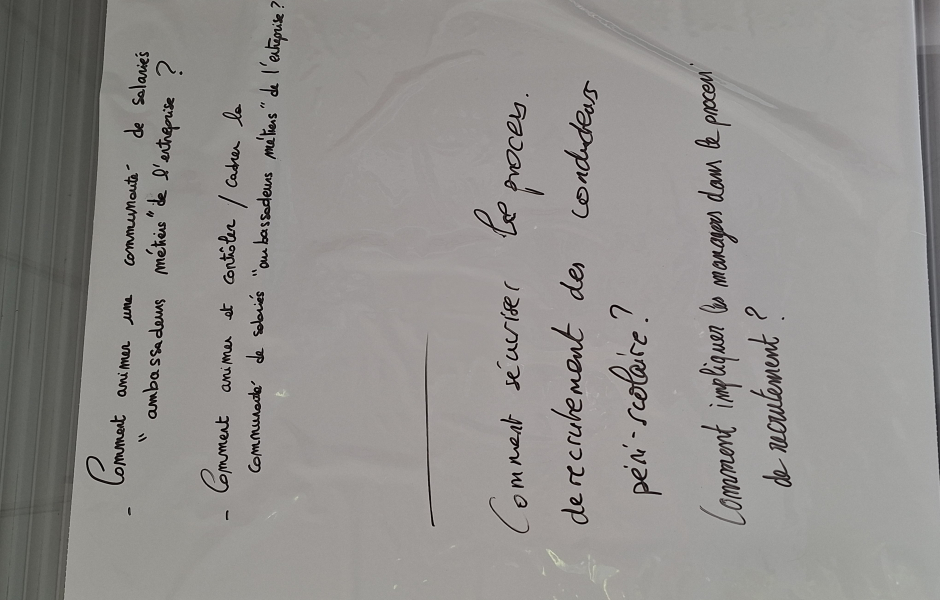 - Comment animer une communauté de salariés
" ambassadeurs métiers" de l'entreprise ?
- Comment animer et contrôler / cadrer la
communauté de salariés "ambassadeurs métiers" de l'entreprise ?
Comment sécuriser le process.
de recrutement des conducteurs
péri-scolaire ?
Comment impliquer les managers dans le process
de recrutement ?